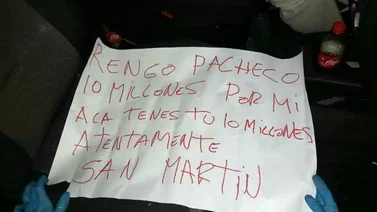 RENGO PACHECO
10 MILLONES POR MI
ACA TENES TU 10 MILLONES
ATENTAMENTE
SAN MARTIN